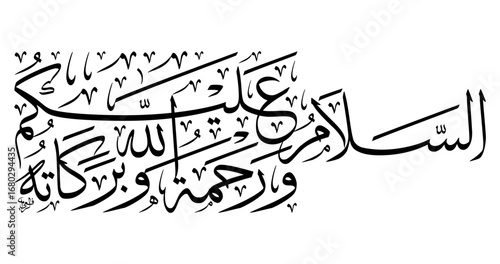 السَّلَامُ عَلَيْكُمْ
وَرَحْمَةُ اللّٰه وَبَرَكَاتُهُ
Adobe Stock | #1680294435